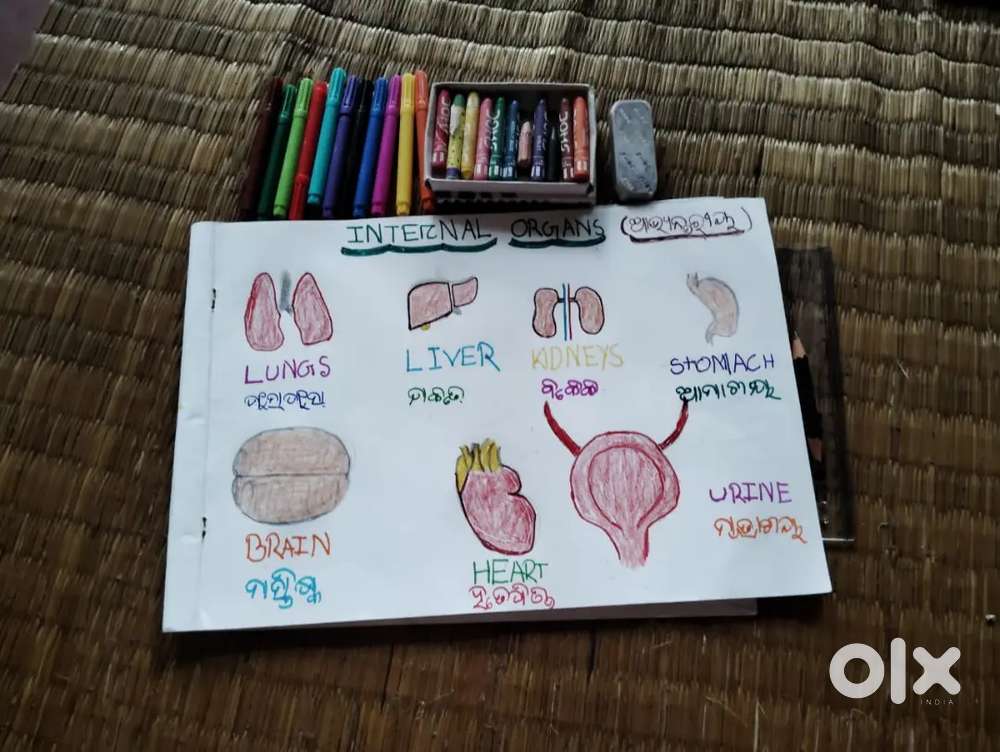 INTERNAL ORGANS (ଆଭ୍ୟନ୍ତରୀଣ)
LUNGS
LIVER
KIDNEYS
STOMACH
ଯକୃତ
ବୃକକ
BRAIN
ମସ୍ତିଷ୍କ
HEART
ହୃତପିଣ୍ଡ
URINE
ମୂତ୍ରାଶୟ
olx
INDIA